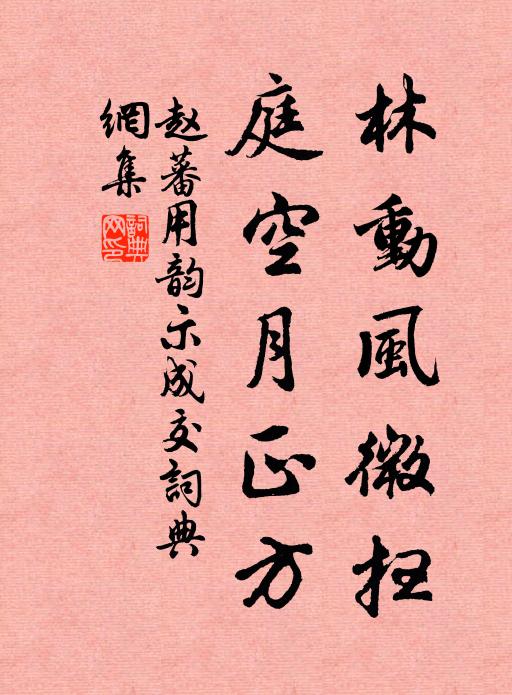 林動風微扫
庭空月正方
赵蕃用韵示成父詞典
網集
詞典网印